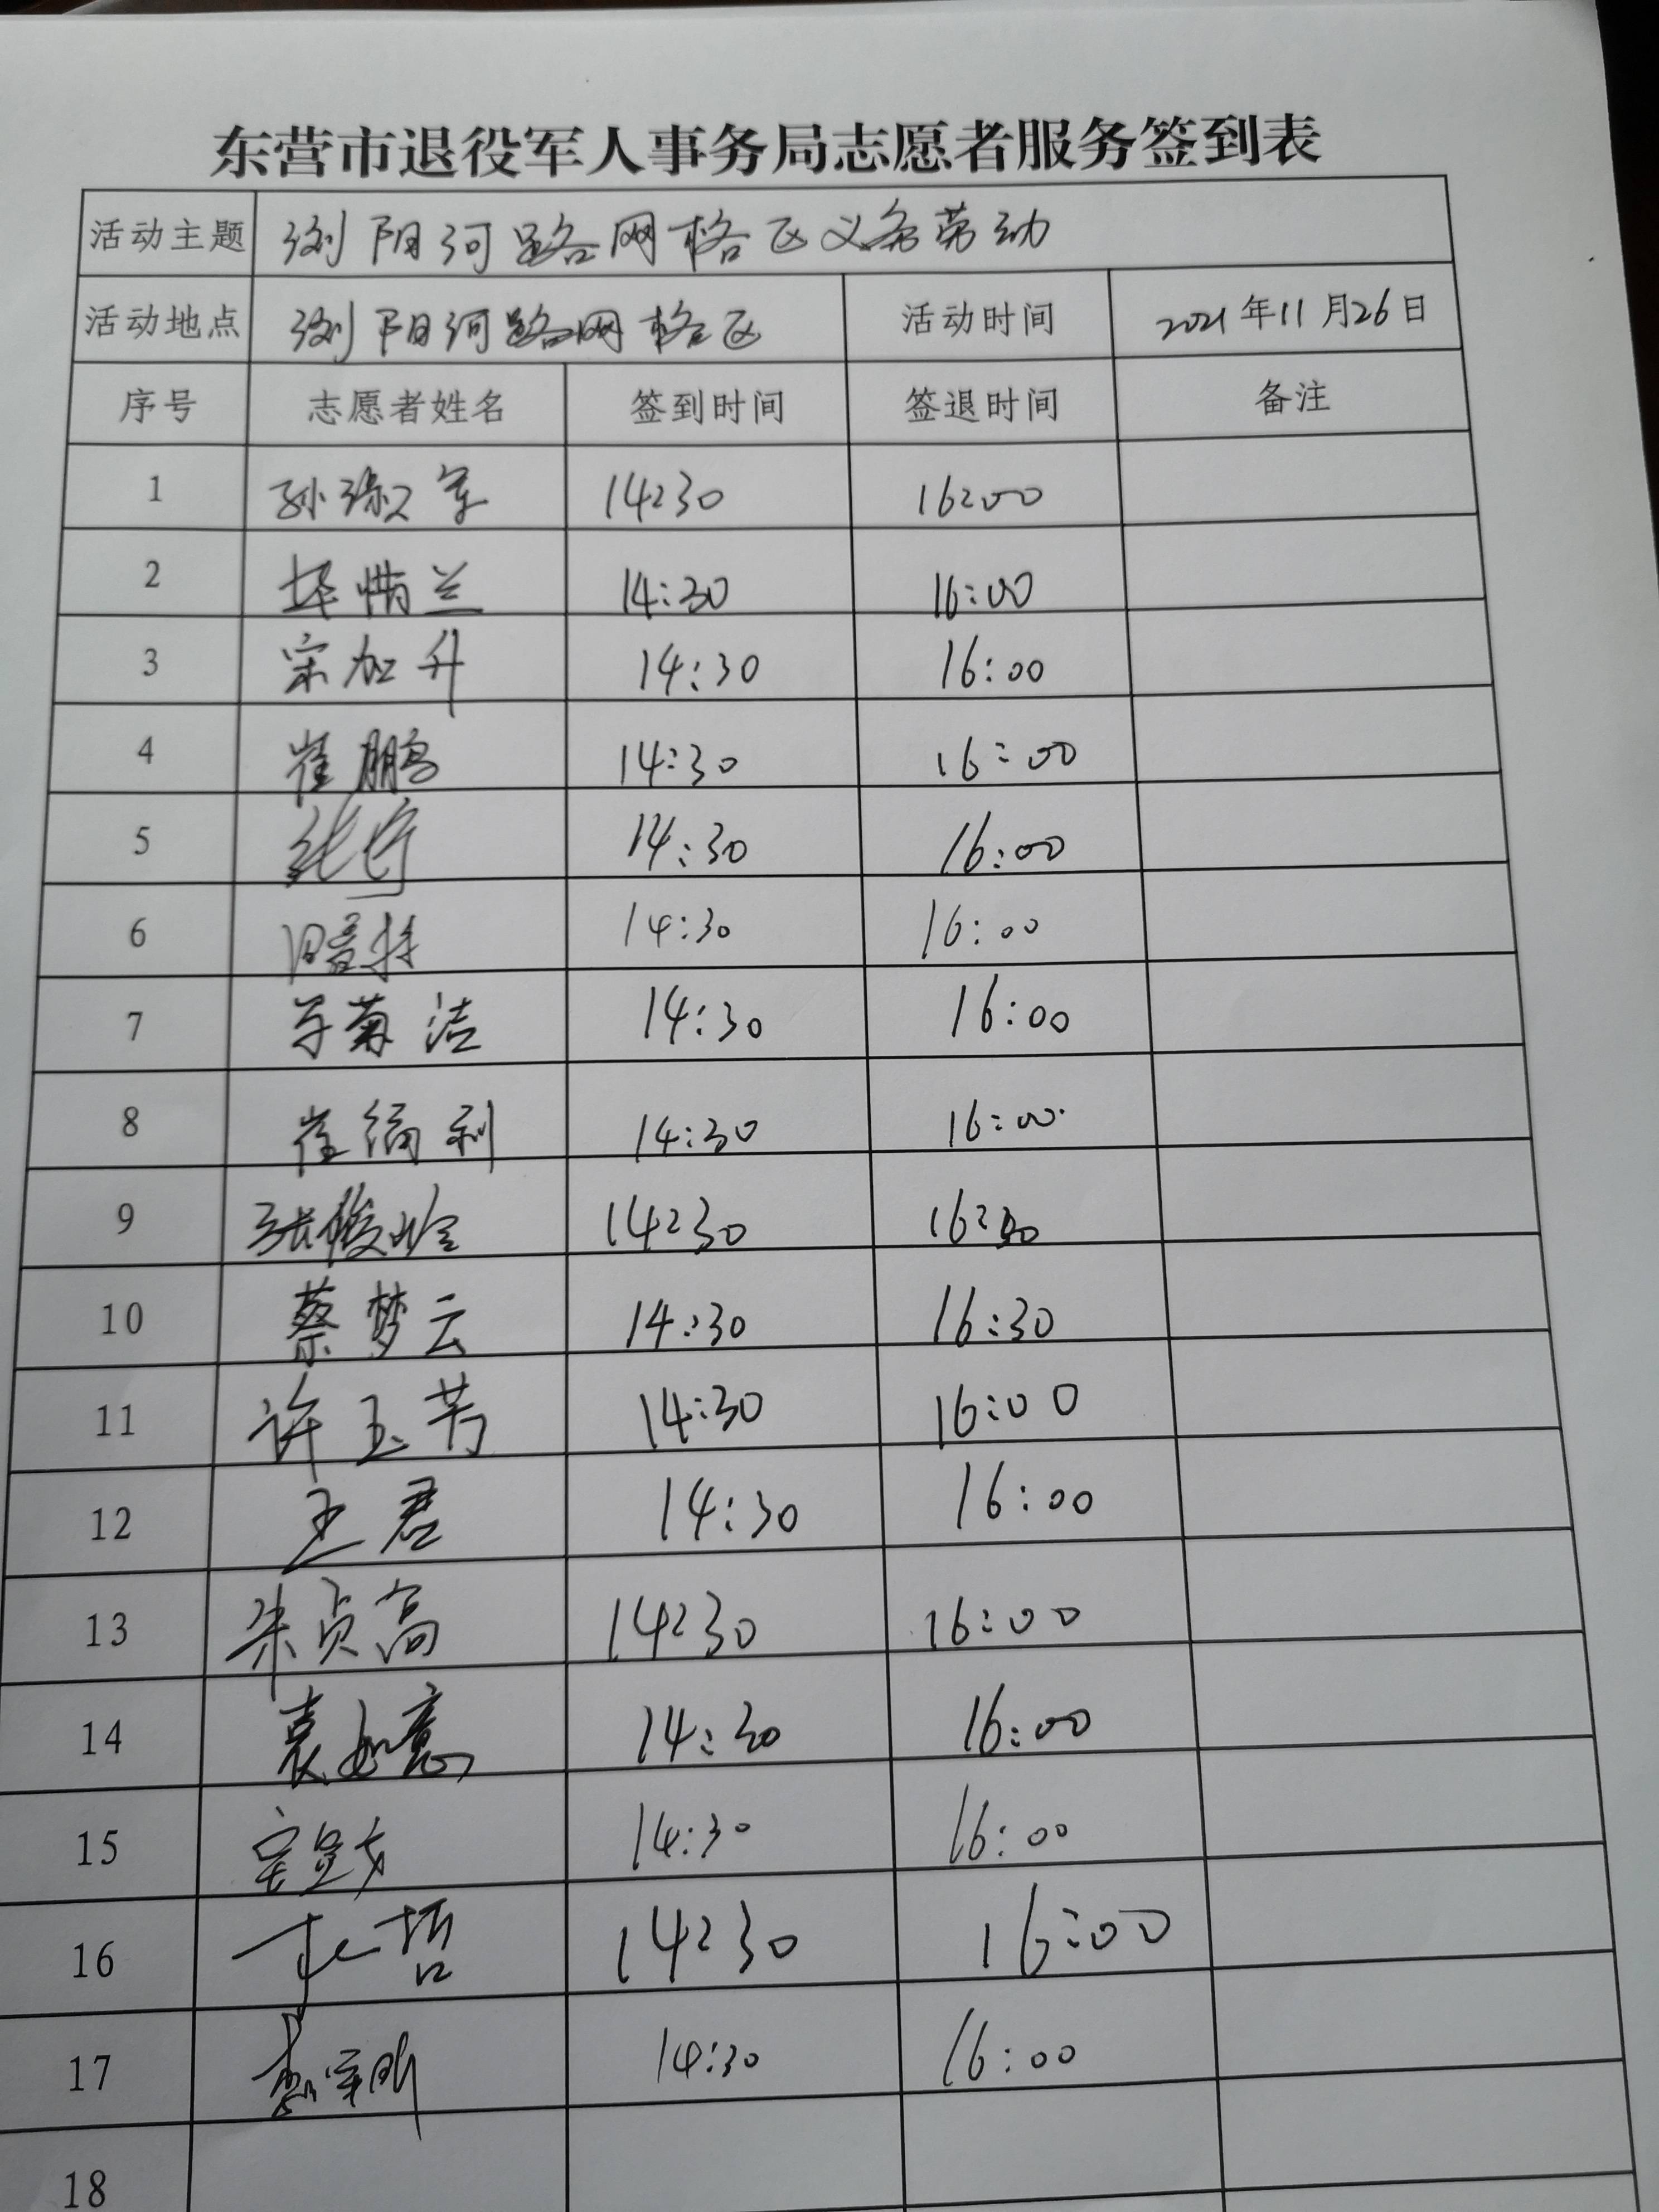 东营市退役军人事务局志愿者服务签到表
活动主题 浏阳河路网格区义务劳动
活动地点 浏阳河路网格区 活动时间 2021年11月26日
序号 志愿者姓名 签到时间 签退时间 备注
1 孙 军 14:30 16:00
2 兰 14:30 16:00
3 宋加升 14:30 16:00
4 崔鹏 14:30 16:00
5 14:30 16:00
6 14:30 16:00
7 菊洁 14:30 16:00
8 崔 利 14:30 16:00
9 张俊岭 14:30 16:30
10 蔡梦云 14:30 16:30
11 许玉芳 14:30 16:00
12 王君 14:30 16:00
13 朱贞高 14:30 16:00
14 袁如意 14:30 16:00
15 14:30 16:00
16 哲 14:30 16:00
17 14:30 16:00
18